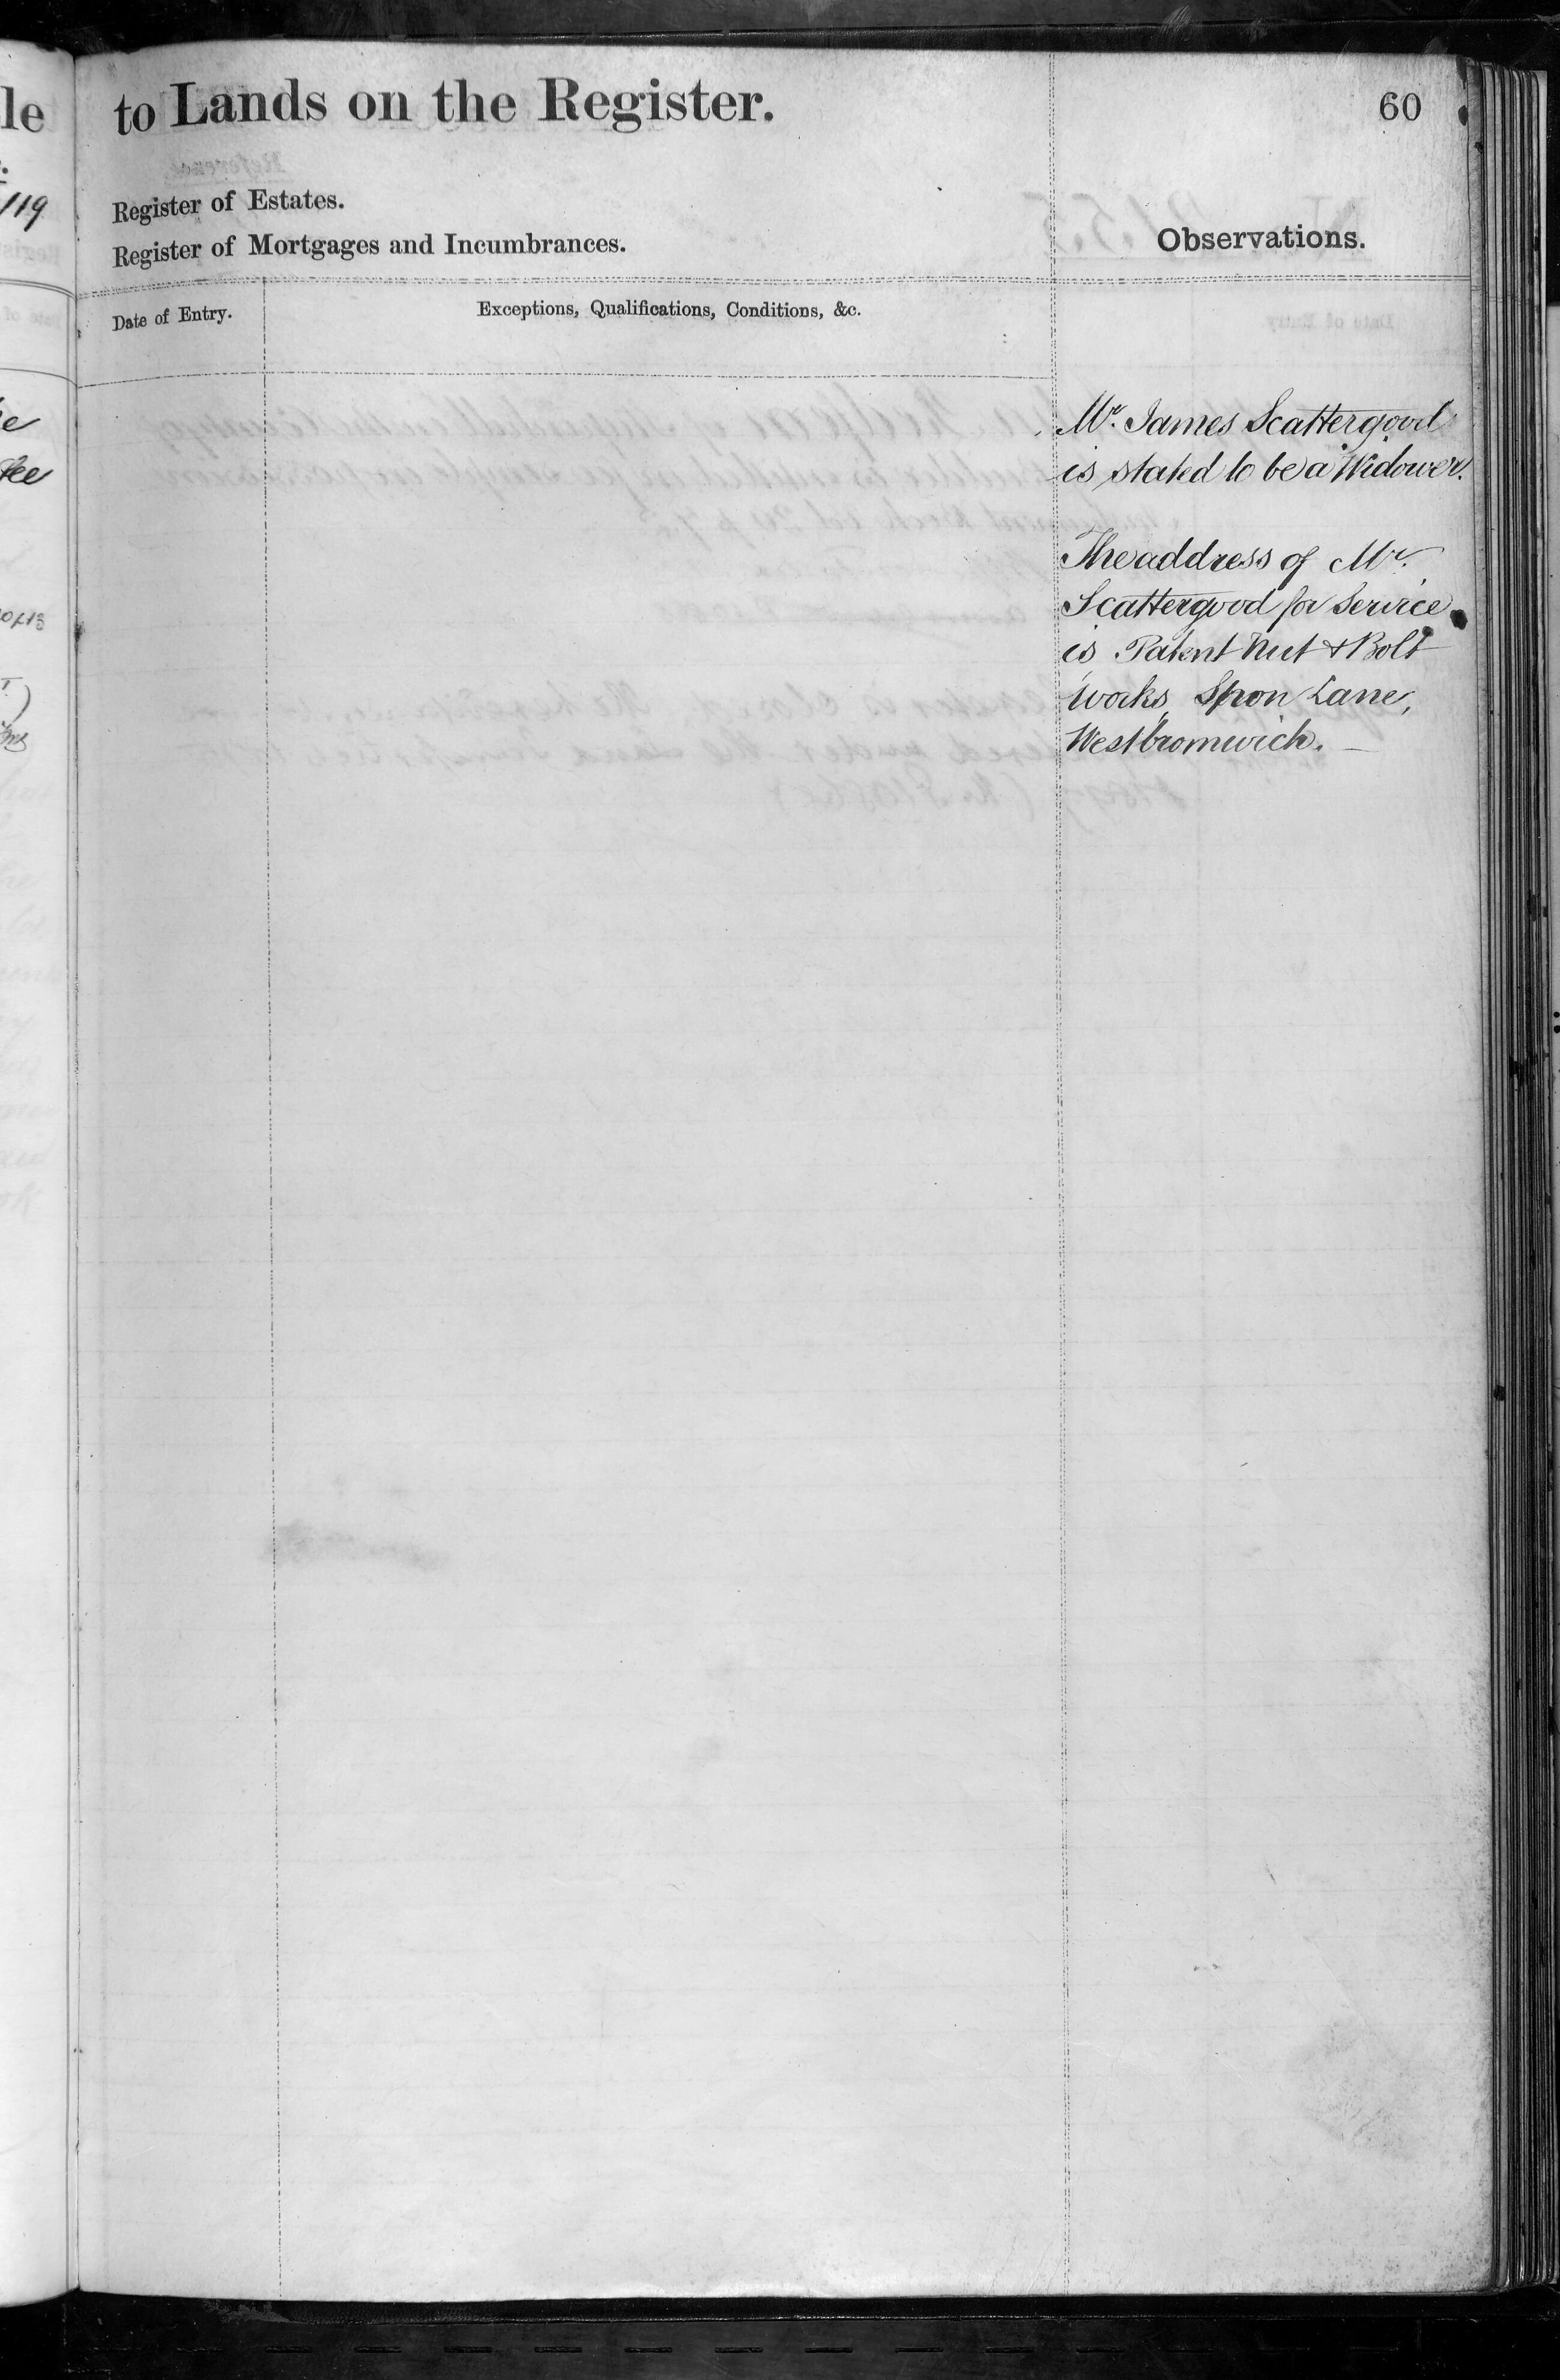 to Lands on the Register.
60
Register of Estates.
Register of Mortgages and Incumbrances.
Observations.
Date of Entry.
Exceptions, Qualifications, Conditions, &c.
Mr. James Scattergood
is stated to be a Widower.
The address of Mr.
Scattergood for Service
is Patent Nut & Bolt
Works, Spon Lane,
Westbromwich.
le
119